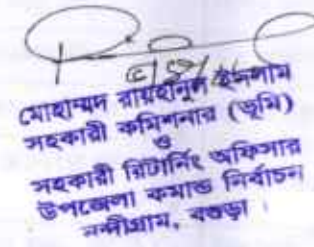 মোহাম্মদ রায়হানুল ইসলাম
সহকারী কমিশনার (ভূমি)
ও
সহকারী রিটার্নিং অফিসার
উপজেলা কমান্ড নির্বাচন
নন্দীগ্রাম, বগুড়া।